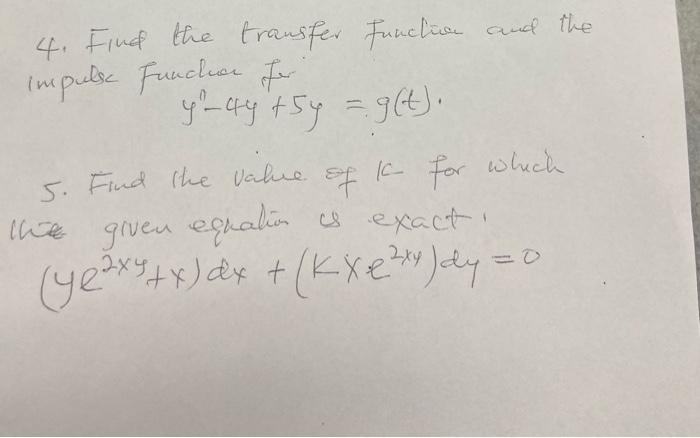 4. Find the transfer function and the
impulse function for
y" - 4y + 5y = g(t).
5. Find the value of K for which
the given equation is exact.
(ye^{2xy} + x) dx + (K x e^{2xy}) dy = 0